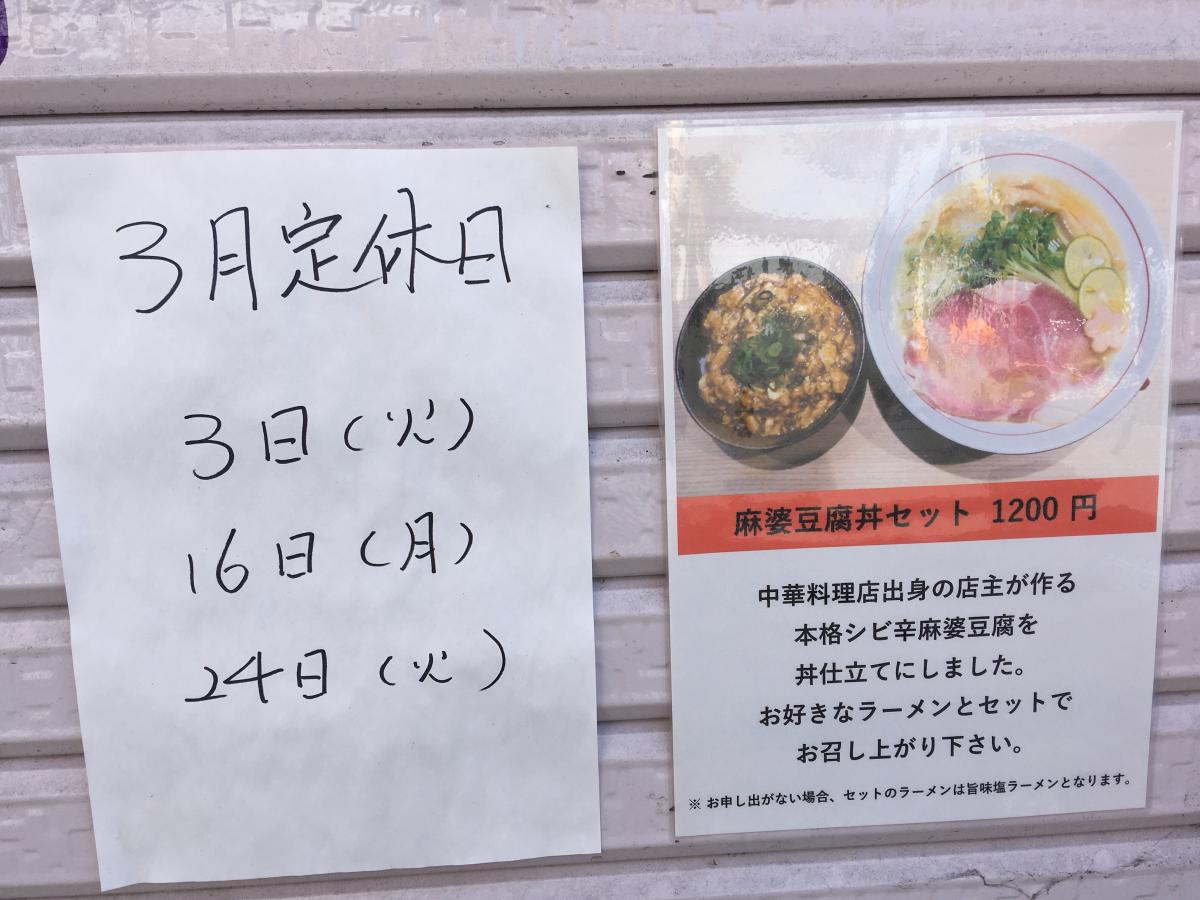 3月定休日
3日（火）
16日（月）
24日（火）
麻婆豆腐丼セット 1200 円
中華料理店出身の店主が作る
本格シビ辛麻婆豆腐を
丼仕立てにしました。
お好きなラーメンとセットで
お召し上がり下さい。
※ お申し出がない場合、セットのラーメンは旨味塩ラーメンとなります。